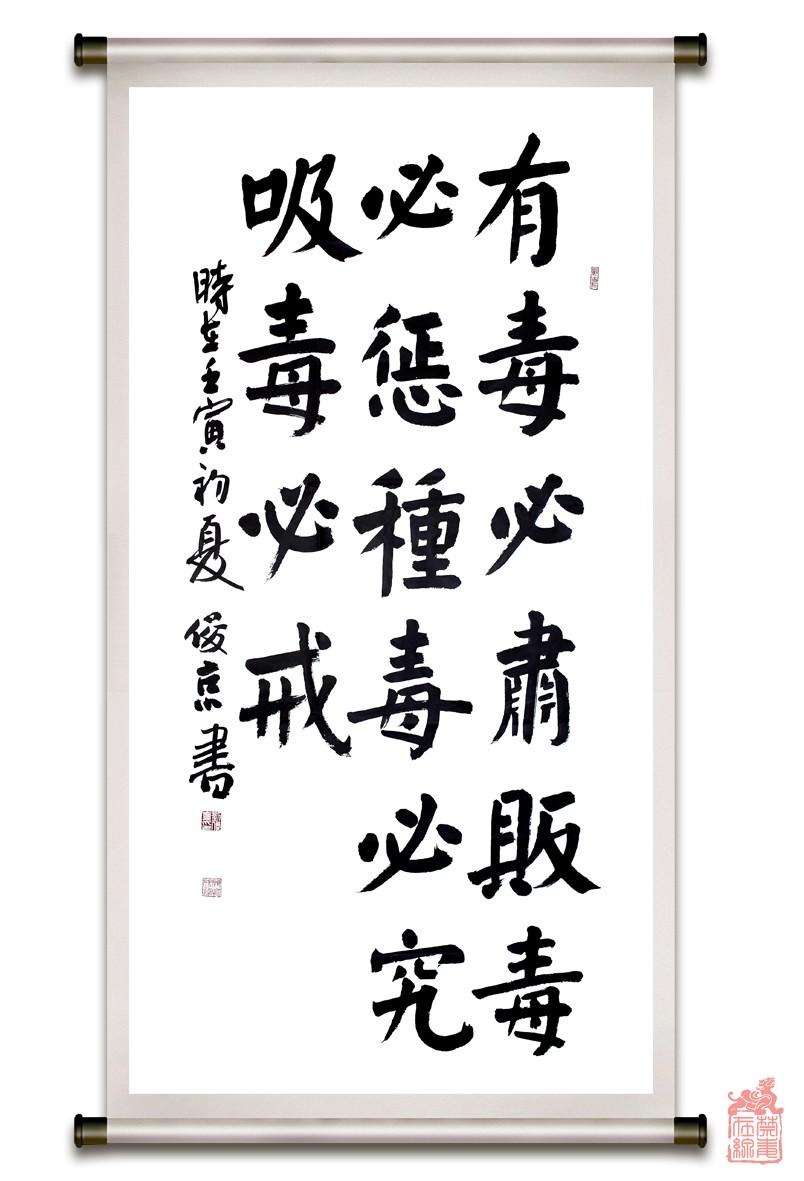 有毒必肅販毒
必惩種毒必究
吸毒必戒
時在壬寅初夏 俊京書